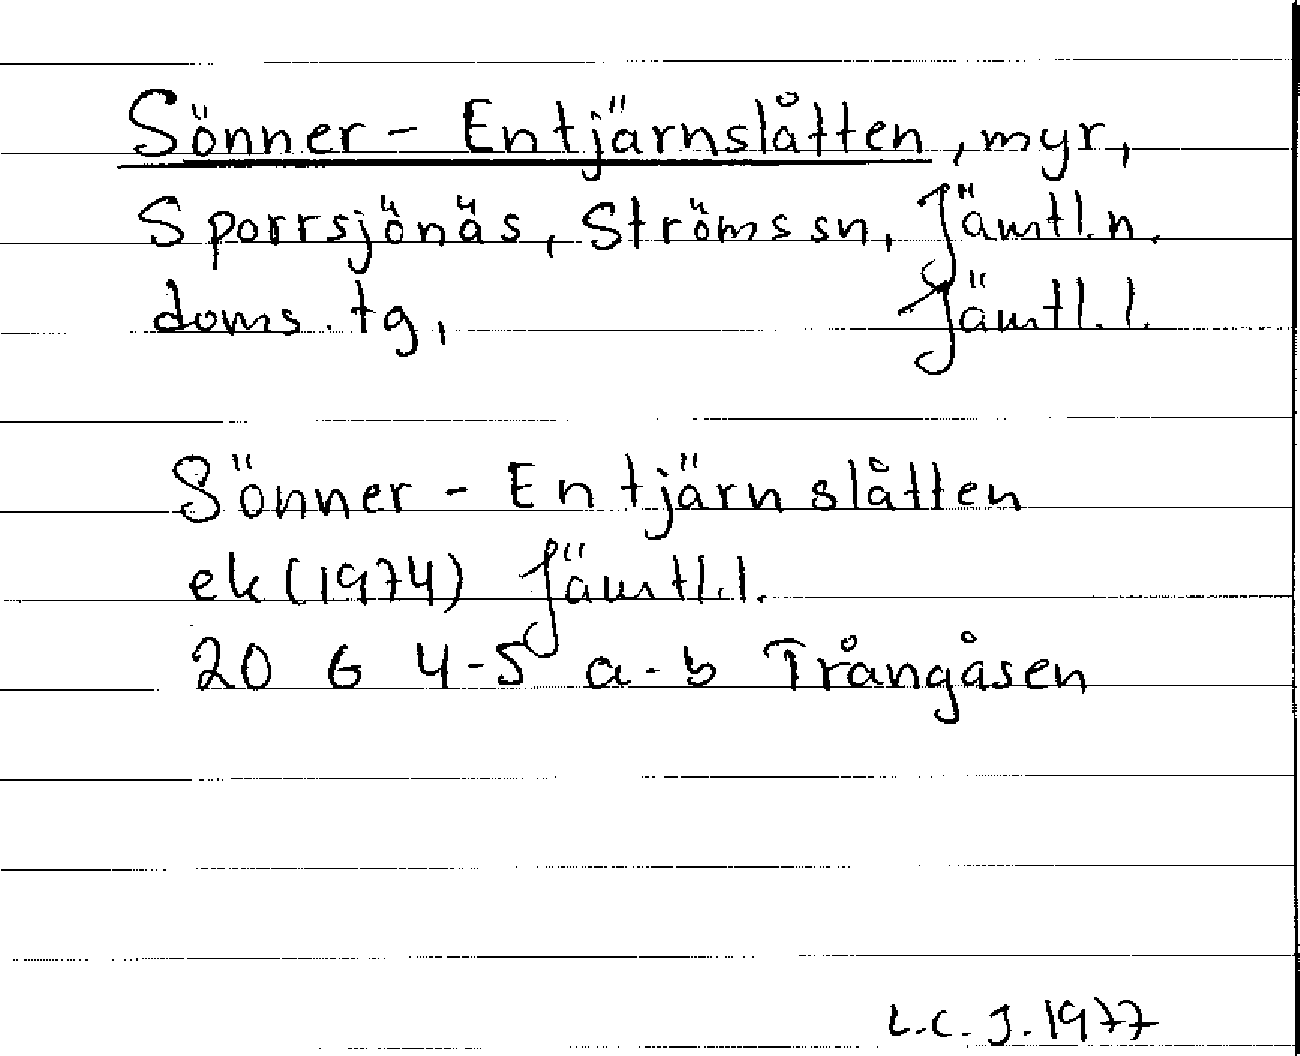 Sönner-Entjärnslåtten, myr,
Sporrsjönäs, Ströms sn, Jämtl.n.
doms.tg, Jämtl.l.
Sönner-Entjärnslåtten
ek (1974) Jämtl.l.
20 G 4-5 a-b Trångåsen
L.C.J. 1977